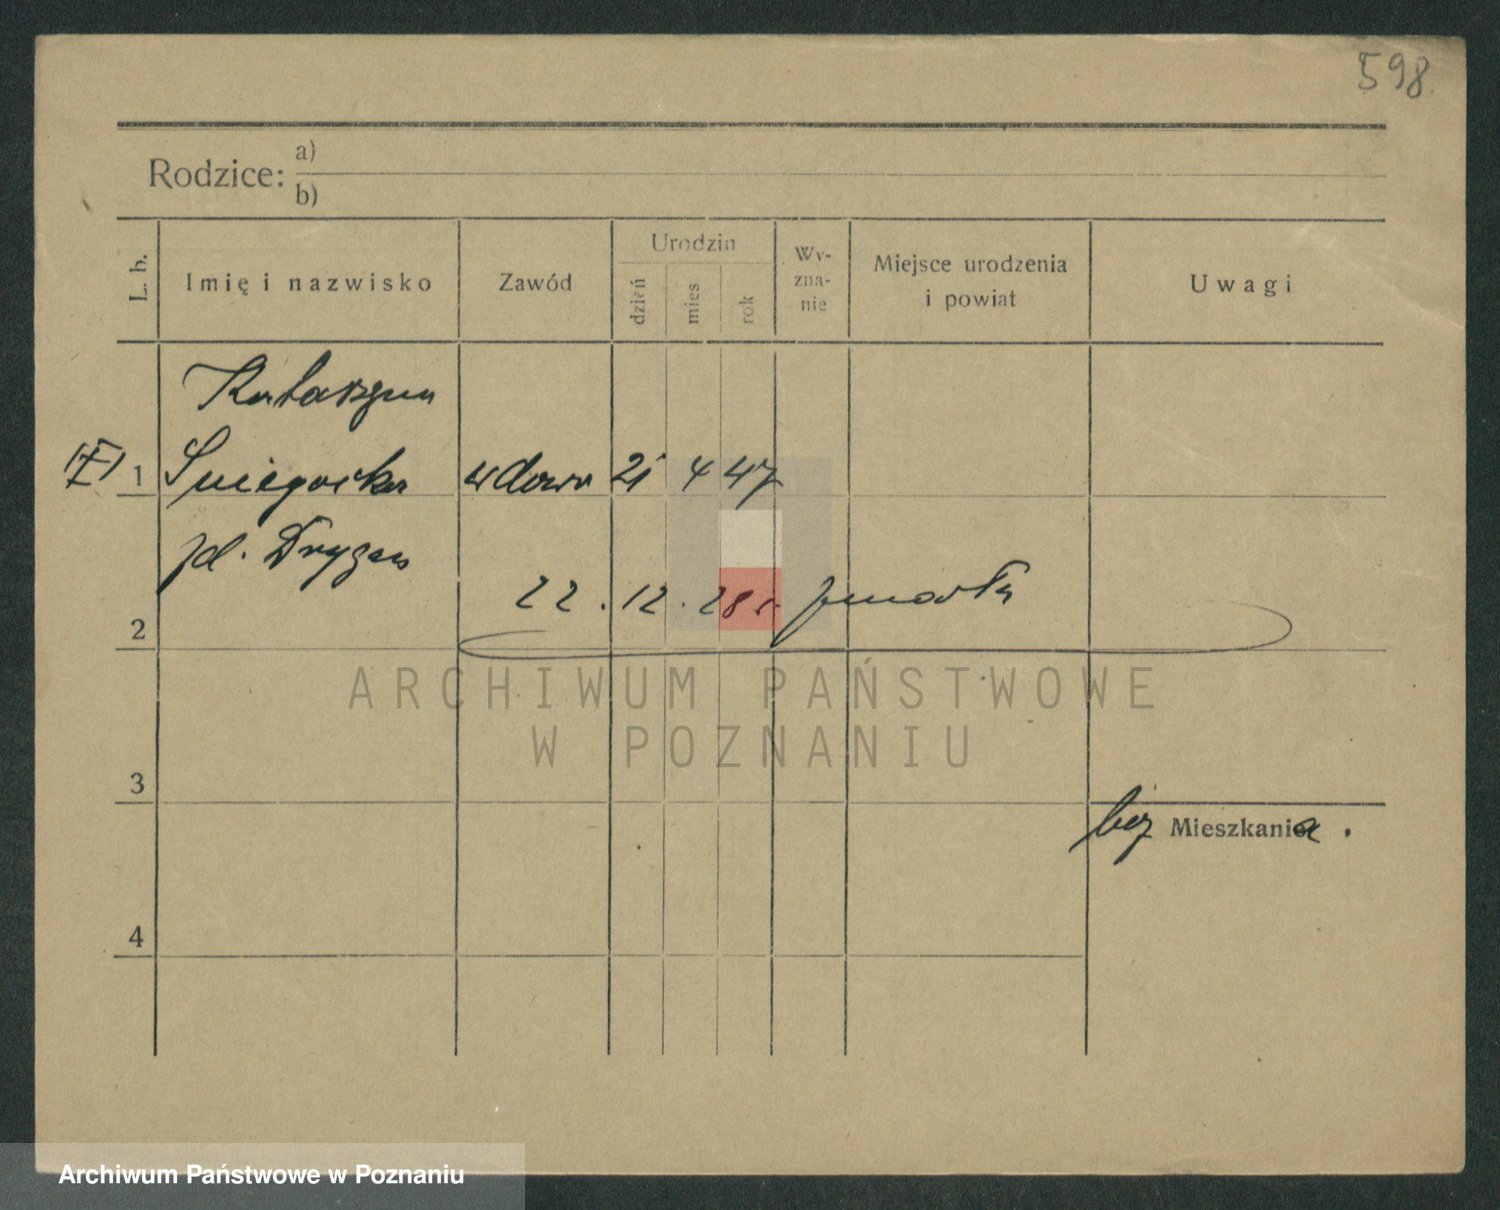 598
Rodzice: a)
b)
L. b. Imię i nazwisko Zawód Urodzin dzień mies rok Wy-zna-nie Miejsce urodzenia i powiat Uwagi
Katarzyna
1 Sniegocka wdowa 21 4 47
pd. Dryzen
22. 12. 28 r. zmarła
2
ARCHIWUM PAŃSTWOWE
W POZNANIU
3
bez Mieszkania.
4
Archiwum Państwowe w Poznaniu